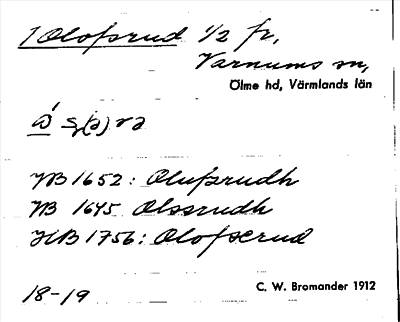 1 Olofsrud 1/2 fr,
Varnums sn,
Ölme hd, Värmlands län
JB 1652: Olufsrudh
JB 1645 Olssrudh
HB 1756: Olofserud
18-19 C. W. Bromander 1912